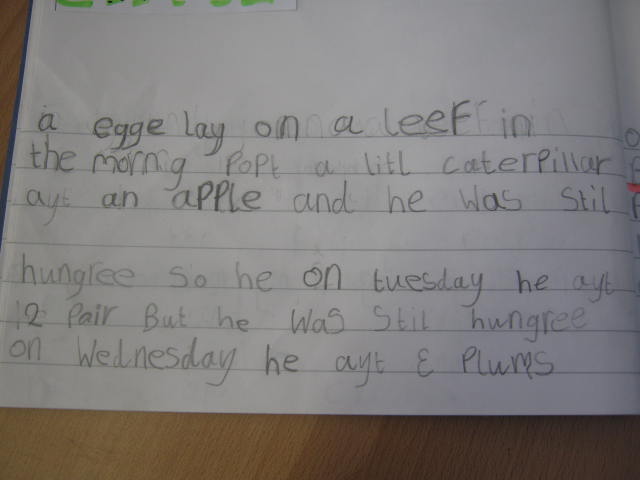 a egge lay on a leef in
the mornng popt a litl caterpillar
ayt an apple and he was stil
hungree so he on tuesday he ayt
2 pair But he was stil hungree
on Wednesday he ayt 3 plums